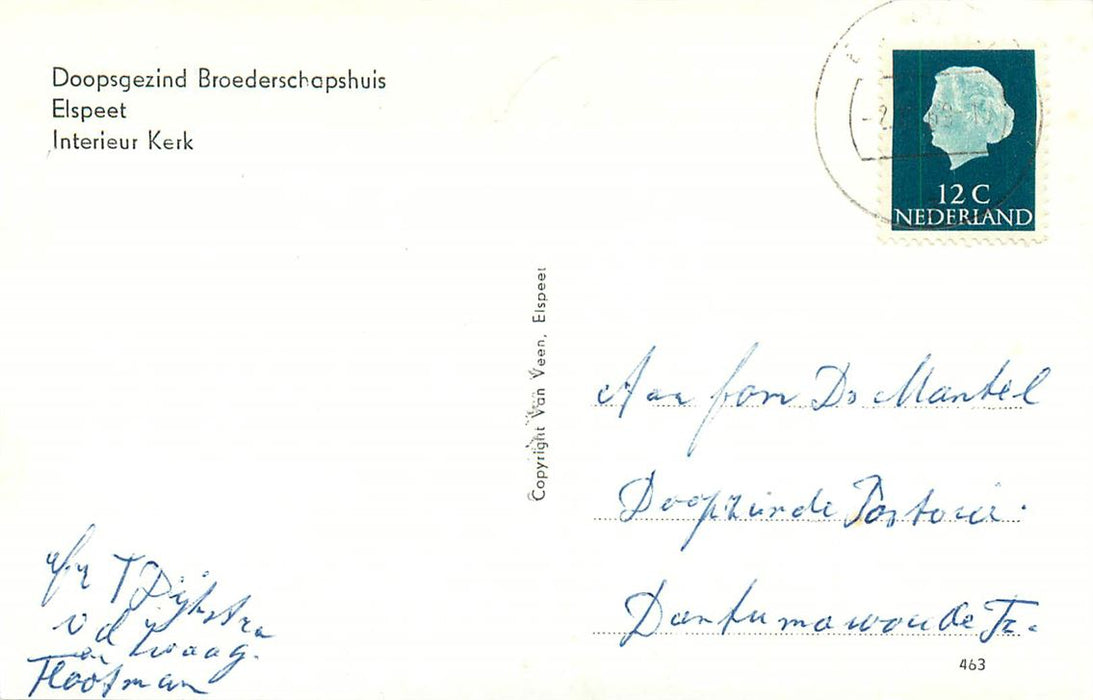 Doopsgezind Broederschapshuis
Elspeet
Interieur Kerk
12 C
NEDERLAND
Copyright Van Veen, Elspeet
Aan fam Ds Mantel
Doopzinde Pastorie.
Dantumawoude Fr.
463
afz T Dijkstra
v d Zwaag.
en
Flootman